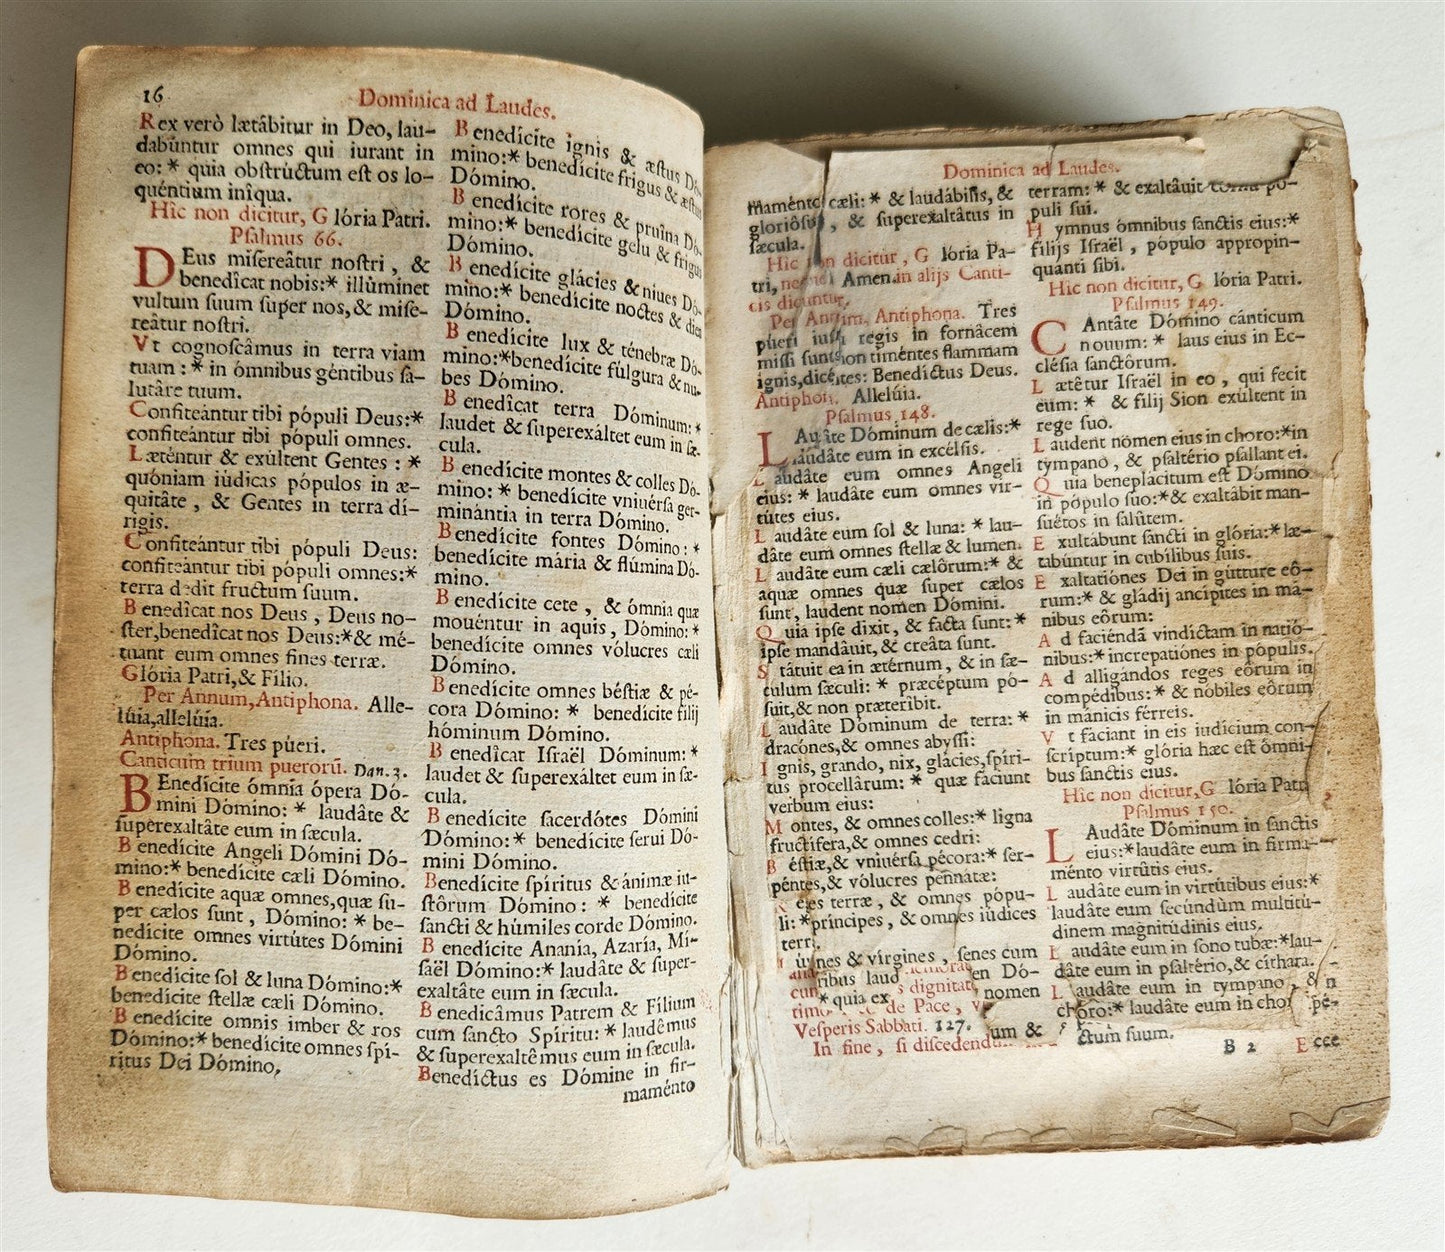 16
Dominica ad Laudes.
Rex verò lætábitur in Deo, lau-
dabúntur omnes qui iurant in
eo: * quia obstrúctum est os lo-
quéntium iníqua.
Hîc non dicitur, Glória Patri.
Psalmus 66.
DEus misereâtur nostri, &
benedîcat nobis:* illúminet
vultum suum super nos, & mise-
reâtur nostri.
Vt cognoscâmus in terra viam
tuam: * in ómnibus géntibus sa-
lutâre tuum.
Confiteántur tibi pópuli Deus:*
confiteántur tibi pópuli omnes.
Læténtur & exúltent Gentes: *
quóniam iúdicas pópulos in æ-
quitâte, & Gentes in terra dí-
rigis.
Confiteántur tibi pópuli Deus:
confiteántur tibi pópuli omnes:*
terra dedit fructum suum.
Benedîcat nos Deus, Deus no-
ster, benedîcat nos Deus:* & mé-
tuant eum omnes fines terræ.
Glória Patri, & Fílio.
Per Annum, Antiphona. Alle-
lúia, allelúia.
Antiphona. Tres púeri.
Canticum trium puerorũ. Dan. 3.
BEnedícite ómnia ópera Dó-
mini Dómino: * laudâte &
superexaltâte eum in sæcula.
Benedícite Angeli Dómini Dó-
mino:* benedícite cæli Dómino.
Benedícite aquæ omnes, quæ su-
per cælos sunt, Dómino: * be-
nedícite omnes virtútes Dómini
Dómino.
Benedícite sol & luna Dómino:*
benedícite stellæ cæli Dómino.
Benedícite omnis imber & ros
Dómino:* benedícite omnes spí-
ritus Dei Dómino,
Benedícite ignis & æstus Dó-
mino:* benedícite frigus & æstus
Dómino.
Benedícite rores & pruína Dó-
mino:* benedícite gelu & frigus
Dómino.
Benedícite glácies & niues Dó-
mino:* benedícite noctes & dies
Dómino.
Benedícite lux & ténebræ Dó-
mino:* benedícite fúlgura & nu-
bes Dómino.
Benedîcat terra Dóminum: *
laudet & superexáltet eum in sæ-
cula.
Benedícite montes & colles Dó-
mino: * benedícite vniuérsa ger-
minántia in terra Dómino.
Benedícite fontes Dómino: *
benedícite mária & flúmina Dó-
mino.
Benedícite cete, & ómnia quæ
mouéntur in aquis, Dómino: *
benedícite omnes vólucres cæli
Dómino.
Benedícite omnes béstiæ & pé-
cora Dómino: * benedícite fílij
hóminum Dómino.
Benedîcat Israël Dóminum: *
laudet & superexáltet eum in sæ-
cula.
Benedícite sacerdótes Dómini
Dómino: * benedícite serui Dó-
mini Dómino.
Benedícite spíritus & ánimæ iu-
stôrum Dómino: * benedícite
sancti & húmiles corde Dómino.
Benedícite Ananía, Azaría, Mí-
saël Dómino:* laudâte & super-
exaltâte eum in sæcula.
Benedicâmus Patrem & Fílium
cum sancto Spíritu: * laudêmus
& superexaltêmus eum in sæcula.
Benedíctus es Dómine in fir-
maménto
Dominica ad Laudes.
maménto cæli: * & laudábilis, &
gloriôsus, & superexaltâtus in
sæcula.
Hîc non dicitur, Glória Pa-
tri, Amen. in alijs Canti-
cis dicuntur.
Per Annum, Antiphona. Tres
púeri iussu regis in fornâcem
missi sunt, non timéntes flammam
ignis, dicéntes: Benedíctus Deus.
Antiphon. Allelúia.
Psalmus 148.
LAudâte Dóminum de cælis:*
laudâte eum in excélsis.
Laudâte eum omnes Angeli
eius: * laudâte eum omnes vir-
tútes eius.
Laudâte eum sol & luna: * lau-
dâte eum omnes stellæ & lumen.
Laudâte eum cæli cælôrum:* &
aquæ omnes quæ super cælos
sunt, laudent nomen Dómini.
Quia ipse dixit, & facta sunt: *
ipse mandâuit, & creâta sunt.
Státuit ea in ætérnum, & in sæ-
culum sæculi: * præcéptum pó-
suit, & non præteríbit.
Laudâte Dóminum de terra: *
dracónes, & omnes abyssi:
Ignis, grando, nix, glácies, spíri-
tus procellârum: * quæ fáciunt
verbum eius:
Montes, & omnes colles:* ligna
fructífera, & omnes cedri:
Béstiæ, & vniuérsa pécora:* ser-
péntes, & vólucres pennâtæ:
Reges terræ, & omnes pópu-
li: * príncipes, & omnes iúdices
terræ.
Iúuenes & vírgines, senes cum
ribus laud en Dó-
cum * quia ex s dignitat nomen
de Pace, v
Vesperis Sabbati. 127. um &
In fine, si discedend
terram: * & exaltâuit cornu pó-
puli sui.
Hymnus ómnibus sanctis eius:*
fílijs Israël, pópulo appropin-
quánti sibi.
Hîc non dicitur, Glória Patri.
Psalmus 149.
CAntâte Dómino cánticum
nouum: * laus eius in Ec-
clésia sanctôrum.
Lætêtur Israël in eo, qui fecit
eum: * & fílij Sion exúltent in
rege suo.
Laudent nomen eius in choro:* in
tympano, & psaltério psallant ei.
Quia beneplácitum est Dómino
in pópulo suo:* & exaltâbit man-
suétos in salûtem.
Exultâbunt sancti in glória:* læ-
tabúntur in cubílibus suis.
Exaltatiónes Dei in gútture eô-
rum:* & gládij ancípites in má-
nibus eôrum:
Ad faciéndã vindíctam in natió-
nibus:* increpatiónes in pópulis.
Ad alligándos reges eôrum in
compédibus: * & nóbiles eôrum
in mánicis férreis.
Vt fáciant in eis iudícium con-
scríptum:* glória hæc est ómni-
bus sanctis eius.
Hîc non dicitur, Glória Patri
Psalmus 150.
LAudâte Dóminum in sanctis
eius:* laudâte eum in firma-
ménto virtûtis eius.
Laudâte eum in virtútibus eius:*
laudâte eum secúndùm multitú-
dinem magnitúdinis eius.
Laudâte eum in sono tubæ:* lau-
dâte eum in psaltério, & cíthara.
Laudâte eum in tympano, & n
choro:* laudâte eum in cho pé-
ctum suum.
B 2 Ecce